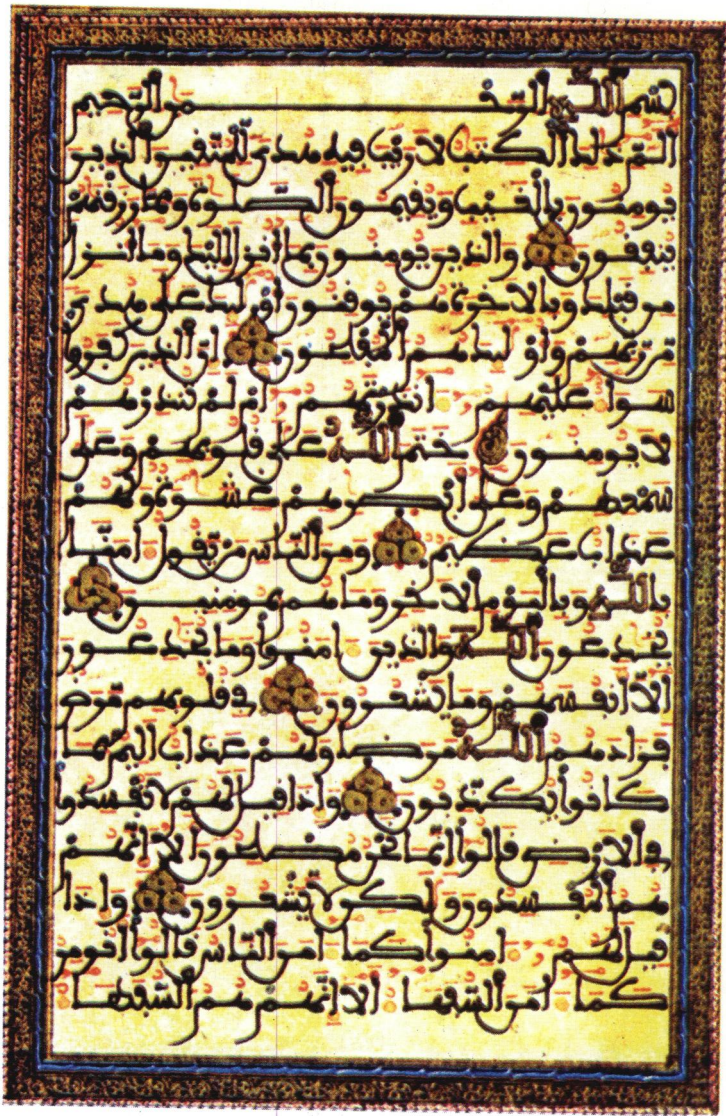 بسم الله الرحمن الرحيم
الم ذلك الكتب لا ريب فيه هدى للمتقين الذين
يومنون بالغيب ويقيمون الصلوة ومما رزقنهم
ينفقون والذين يومنون بما انزل اليك وما انزل
من قبلك وبالاخرة هم يوقنون اولئك على هدى
من ربهم واولئك هم المفلحون ان الذين كفروا
سوا عليهم انذرتهم ام لم تنذرهم
لا يومنون ختم الله على قلوبهم وعلى
سمعهم وعلى ابصرهم غشوة ولهم
عذاب عظيم ومن الناس من يقول امنا
بالله وباليوم الاخر وما هم بمومنين
يخدعون الله والذين امنوا وما يخدعون
الا انفسهم وما يشعرون في قلوبهم مرض
فزادهم الله مرضا ولهم عذاب اليم بما
كانوا يكذبون واذا قيل لهم لا تفسدوا
في الارض قالوا انما نحن مصلحون الا انهم
هم المفسدون ولكن لا يشعرون واذا
قيل لهم امنوا كما امن الناس قالوا انومن
كما امن السفها الا انهم هم السفها